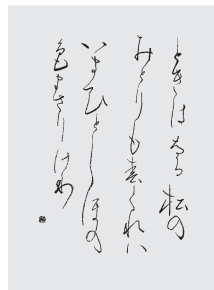 ときはなる松の
みどりも春くれば
いまひとしほの
色まさりけり